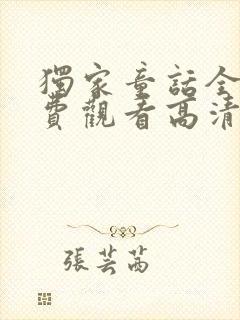 獨家童話全
費觀看高清
張芸茜